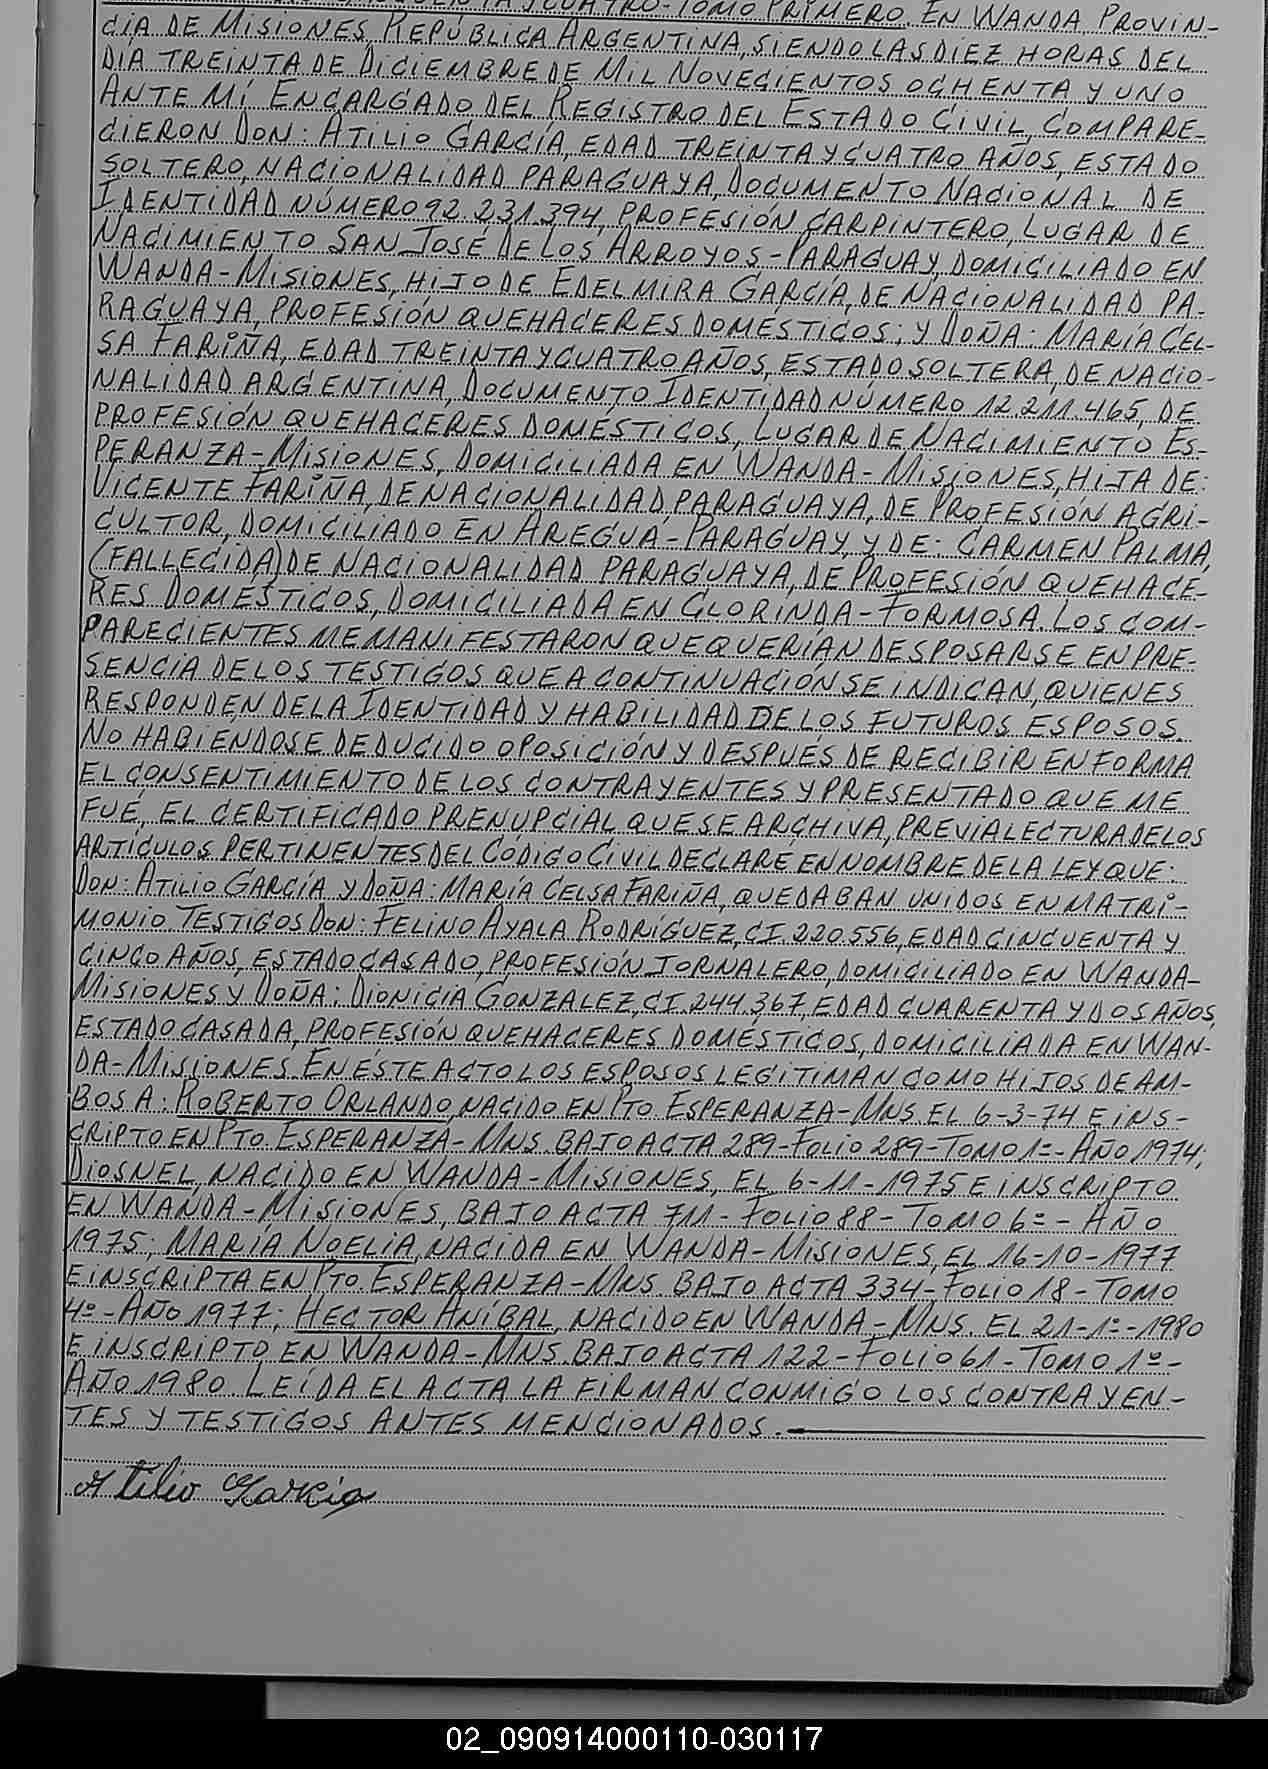 Y CUATRO-TOMO PRIMERO. EN WANDA, PROVIN-
CIA DE MISIONES, REPÚBLICA ARGENTINA, SIENDO LAS DIEZ HORAS DEL
DÍA TREINTA DE DICIEMBRE DE MIL NOVECIENTOS OCHENTA Y UNO
ANTE MÍ ENCARGADO DEL REGISTRO DEL ESTADO CIVIL, COMPARE-
CIERON DON: ATILIO GARCÍA, EDAD TREINTA Y CUATRO AÑOS, ESTADO
SOLTERO, NACIONALIDAD PARAGUAYA, DOCUMENTO NACIONAL DE
IDENTIDAD NÚMERO 92.231.394, PROFESIÓN CARPINTERO, LUGAR DE
NACIMIENTO SAN JOSÉ DE LOS ARROYOS-PARAGUAY, DOMICILIADO EN
WANDA-MISIONES, HIJO DE EDELMIRA GARCÍA, DE NACIONALIDAD PA-
RAGUAYA, PROFESIÓN QUEHACERES DOMÉSTICOS; Y DOÑA: MARÍA CEL-
SA FARIÑA, EDAD TREINTA Y CUATRO AÑOS, ESTADO SOLTERA, DE NACIO-
NALIDAD ARGENTINA, DOCUMENTO IDENTIDAD NÚMERO 12.211.465, DE
PROFESIÓN QUEHACERES DOMÉSTICOS, LUGAR DE NACIMIENTO ES-
PERANZA-MISIONES, DOMICILIADA EN WANDA-MISIONES, HIJA DE:
VICENTE FARIÑA, DE NACIONALIDAD PARAGUAYA, DE PROFESIÓN AGRI-
CULTOR, DOMICILIADO EN AREGUÁ-PARAGUAY, Y DE: CARMEN PALMA,
(FALLECIDA) DE NACIONALIDAD PARAGUAYA, DE PROFESIÓN QUEHACE-
RES DOMÉSTICOS, DOMICILIADA EN CLORINDA-FORMOSA. LOS COM-
PARECIENTES ME MANIFESTARON QUE QUERÍAN DESPOSARSE EN PRE-
SENCIA DE LOS TESTIGOS QUE A CONTINUACIÓN SE INDICAN, QUIENES
RESPONDEN DE LA IDENTIDAD Y HABILIDAD DE LOS FUTUROS ESPOSOS.
NO HABIENDOSE DEDUCIDO OPOSICIÓN Y DESPUÉS DE RECIBIR EN FORMA
EL CONSENTIMIENTO DE LOS CONTRAYENTES Y PRESENTADO QUE ME
FUÉ, EL CERTIFICADO PRENUPCIAL QUE SE ARCHIVA, PREVIA LECTURA DE LOS
ARTÍCULOS PERTINENTES DEL CÓDIGO CIVIL DECLARÉ, EN NOMBRE DE LA LEY QUE:
DON: ATILIO GARCÍA Y DOÑA: MARÍA CELSA FARIÑA, QUEDABAN UNIDOS EN MATRI-
MONIO TESTIGOS DON: FELINO AYALA RODRÍGUEZ, CI. 220.556, EDAD CINCUENTA Y
CINCO AÑOS, ESTADO CASADO, PROFESIÓN JORNALERO, DOMICILIADO EN WANDA-
MISIONES Y DOÑA: DIONICIA GONZALEZ, CI. 244.367, EDAD CUARENTA Y DOS AÑOS,
ESTADO CASADA, PROFESIÓN QUEHACERES DOMÉSTICOS, DOMICILIADA EN WAN-
DA-MISIONES. EN ÉSTE ACTO LOS ESPOSOS LEGITIMAN COMO HIJOS DE AM-
BOS A: ROBERTO ORLANDO, NACIDO EN PTO. ESPERANZA-MNS. EL 6-3-74 E INS-
CRIPTO EN PTO. ESPERANZA-MNS. BAJO ACTA 289-FOLIO 289-TOMO 1º-AÑO 1974;
DIOSNEL, NACIDO EN WANDA-MISIONES, EL 6-11-1975 E INSCRIPTO
EN WANDA-MISIONES, BAJO ACTA 711-FOLIO 88-TOMO 6º-AÑO
1975; MARÍA NOELIA, NACIDA EN WANDA-MISIONES, EL 16-10-1977
E INSCRIPTA EN PTO. ESPERANZA-MNS. BAJO ACTA 334-FOLIO 18-TOMO
4º-AÑO 1977; HECTOR ANÍBAL, NACIDO EN WANDA-MNS. EL 21-1º-1980
E INSCRIPTO EN WANDA-MNS. BAJO ACTA 122-FOLIO 61-TOMO 1º-
AÑO 1980. LEÍDA EL ACTA LA FIRMAN CONMIGO LOS CONTRAYEN-
TES Y TESTIGOS ANTES MENCIONADOS.
Atilio Garcia
02_090914000110-030117